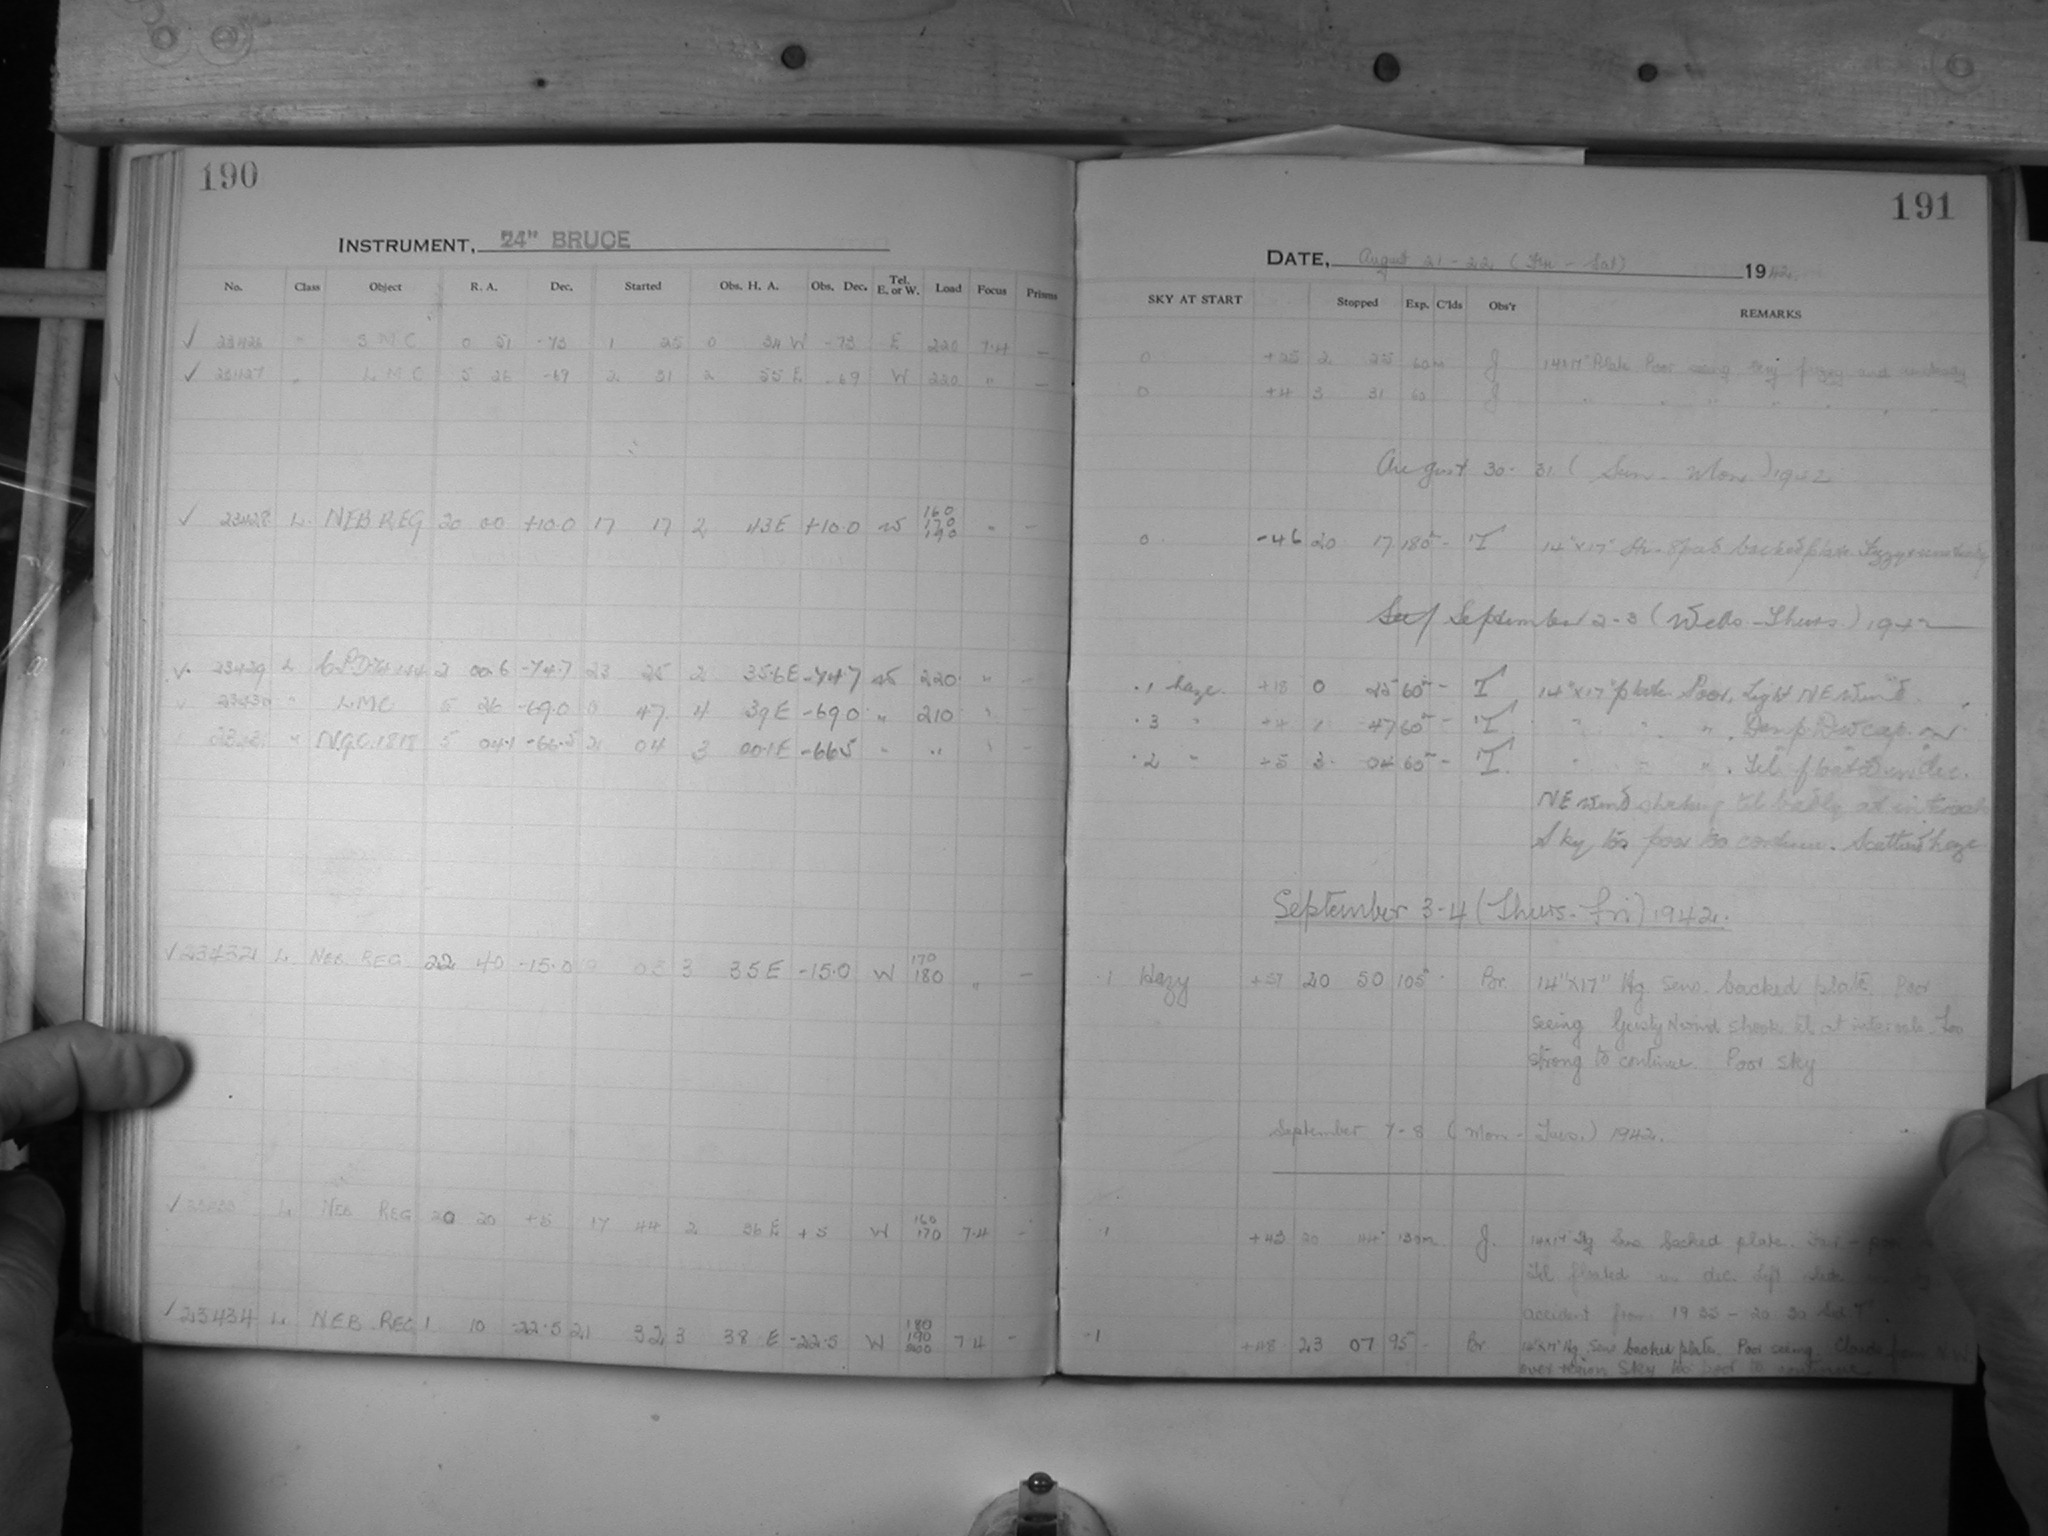 190
INSTRUMENT, 24" BRUCE
No. Class Object R. A. Dec. Started Obs. H. A. Obs. Dec. Tel. E. or W. Load Focus Prisms
✓ 23426 " SMC 0 51 -73 1 25 0 34 W -73 E 220 7.4 —
✓ 23427 " LMC 5 26 -69 2 31 2 55 E -69 W 220 " —
✓ 23428 L NEB REG 20 00 +10.0 17 17 2 43 E +10.0 W 160 170 190 " —
✓ 23429 L 2 00.6 -74.7 23 25 2 35.6 E -74.7 W 220 " —
23430 " LMC 5 26 -69.0 0 47 4 39 E -69.0 " 210 "
" N.G.C. 1818 5 04.1 -66.5 2 04 3 00.1 E -66.5 " " "
✓ L NEB. REG 22 40 -15.0 03 3 35 E -15.0 W 170 180 " —
✓ L NEB REG 20 20 +5 17 44 2 36 E +5 W 160 170 7.4 —
✓ 23434 L NEB REG 1 10 -22.5 21 32 3 38 E -22.5 W 180 190 200 7.4 —
191
DATE, August 21-22 (Fri - Sat) 1942.
SKY AT START Stopped Exp. C'lds Obs'r REMARKS
0 +25 2 25 60m J 14x17" Plate Poor seeing very fuzzy and unsteady
0 +4 3 31 60 J " " " " " " "
August 30-31 (Sun - Mon) 1942
0 -46 20 17 180 - T 14"x17" backed plate. Fuzzy
September 2-3 (Weds - Thurs.) 1942
.1 haze +18 0 25 60 - T 14"x17" plate. Poor, Light NE wind.
.3 " +4 1 47 60 - T " " " . Damp Dewcap on
.2 " +5 3 04 60 - T " " " . Tel floated in dec.
NE wind shaking tel badly at intervals
Sky too poor to continue. Scattered haze
September 3-4 (Thurs - Fri) 1942.
.1 Hazy +57 20 50 105 Br. 14"x17" Hg. Sens. backed plate. Poor
seeing Gusty N wind shook tel at intervals. Too
strong to continue. Poor sky
September 7-8 (Mon - Tues.) 1942.
.1 +43 20 44 180m J. 14x17 Hg Sens. backed plate. Fair - poor
Tel floated in dec. Left slide
accident from 19 35 - 20 30
.1 +48 23 07 95 - Br 14"x17" Hg. Sens backed plate. Poor seeing. Clouds from N.W.
over region Sky too bad to continue.